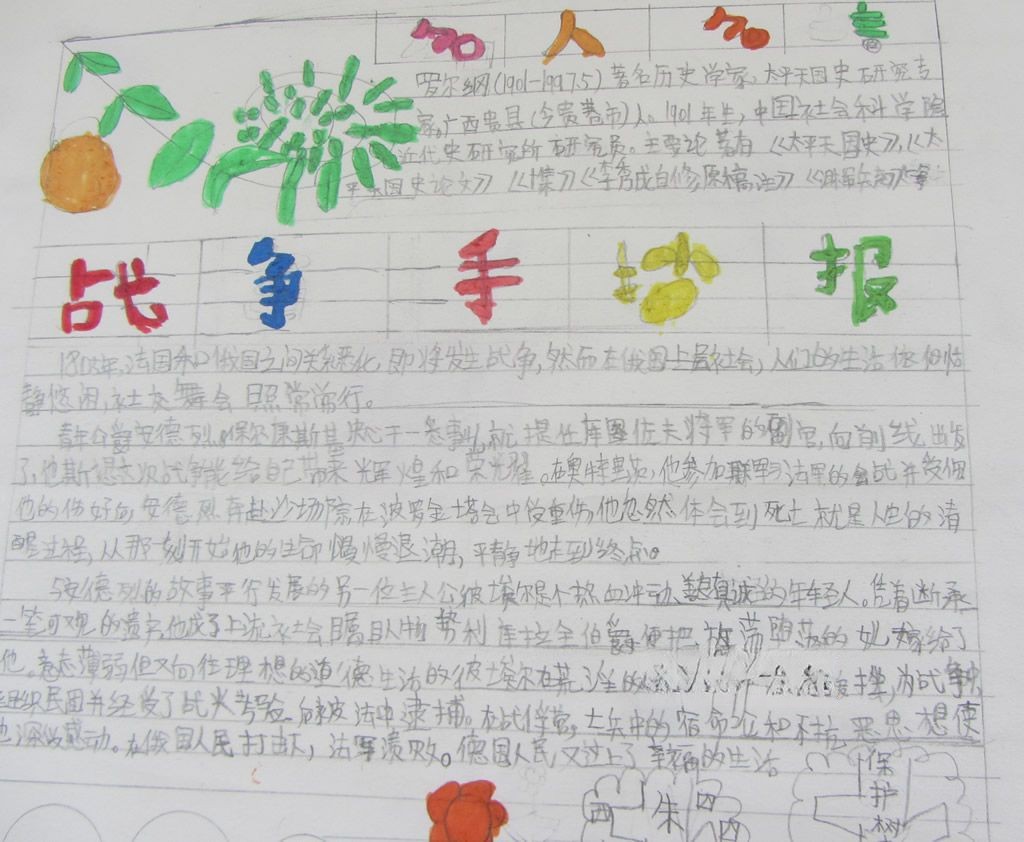 名人名言
罗尔纲(1901-1997.5)著名历史学家,太平天国史研究专
家。广西贵县(今贵港市)人。1901年生,中国社会科学院
近代史研究所研究员。主要论著有《太平天国史》,《太
平天国史论文》《集》《李秀成自修原稿注》
战争手抄报
1805年,法国和俄国之间关系恶化,即将发生战争,然而在俄国上层社会,人们的生活依旧恬
静悠闲,社交舞会照常而行。
青年公爵安德列 保尔康斯基决心干一番事业,就提任库图佐夫将军的副官,向前线出发
了,他期 这次战争能给自己带来辉煌和荣光耀。在奥特里茨,他参加联军与法军的会战并受伤
他的伤好后,安德烈再赴沙场际在波罗金塔会中受重伤,他忽然体会到死亡就是人生的清
醒过程,从那刻开始他的生命慢慢退潮,平静地走到终点。
与安德列的故事平行发展的另一位主人公彼埃尔是个热血冲动 真诚的年轻人。凭着断承
一笔可观的遗产,他成了上流社会瞩目人物 势利库拉金伯爵便把放荡堕落的女儿嫁给了
他。意志薄弱但又向往理想的道德生活的彼埃尔在荒淫的 挫,为战争中
组织民团并经受了战火考验 后被法军逮捕。在战俘营,士兵中的宿命论和不抗恶思想使
他深以感动。在俄国人民打击下,法军溃败。德国人民又过上了幸福的生活
西 朱 四 四
保
护
树